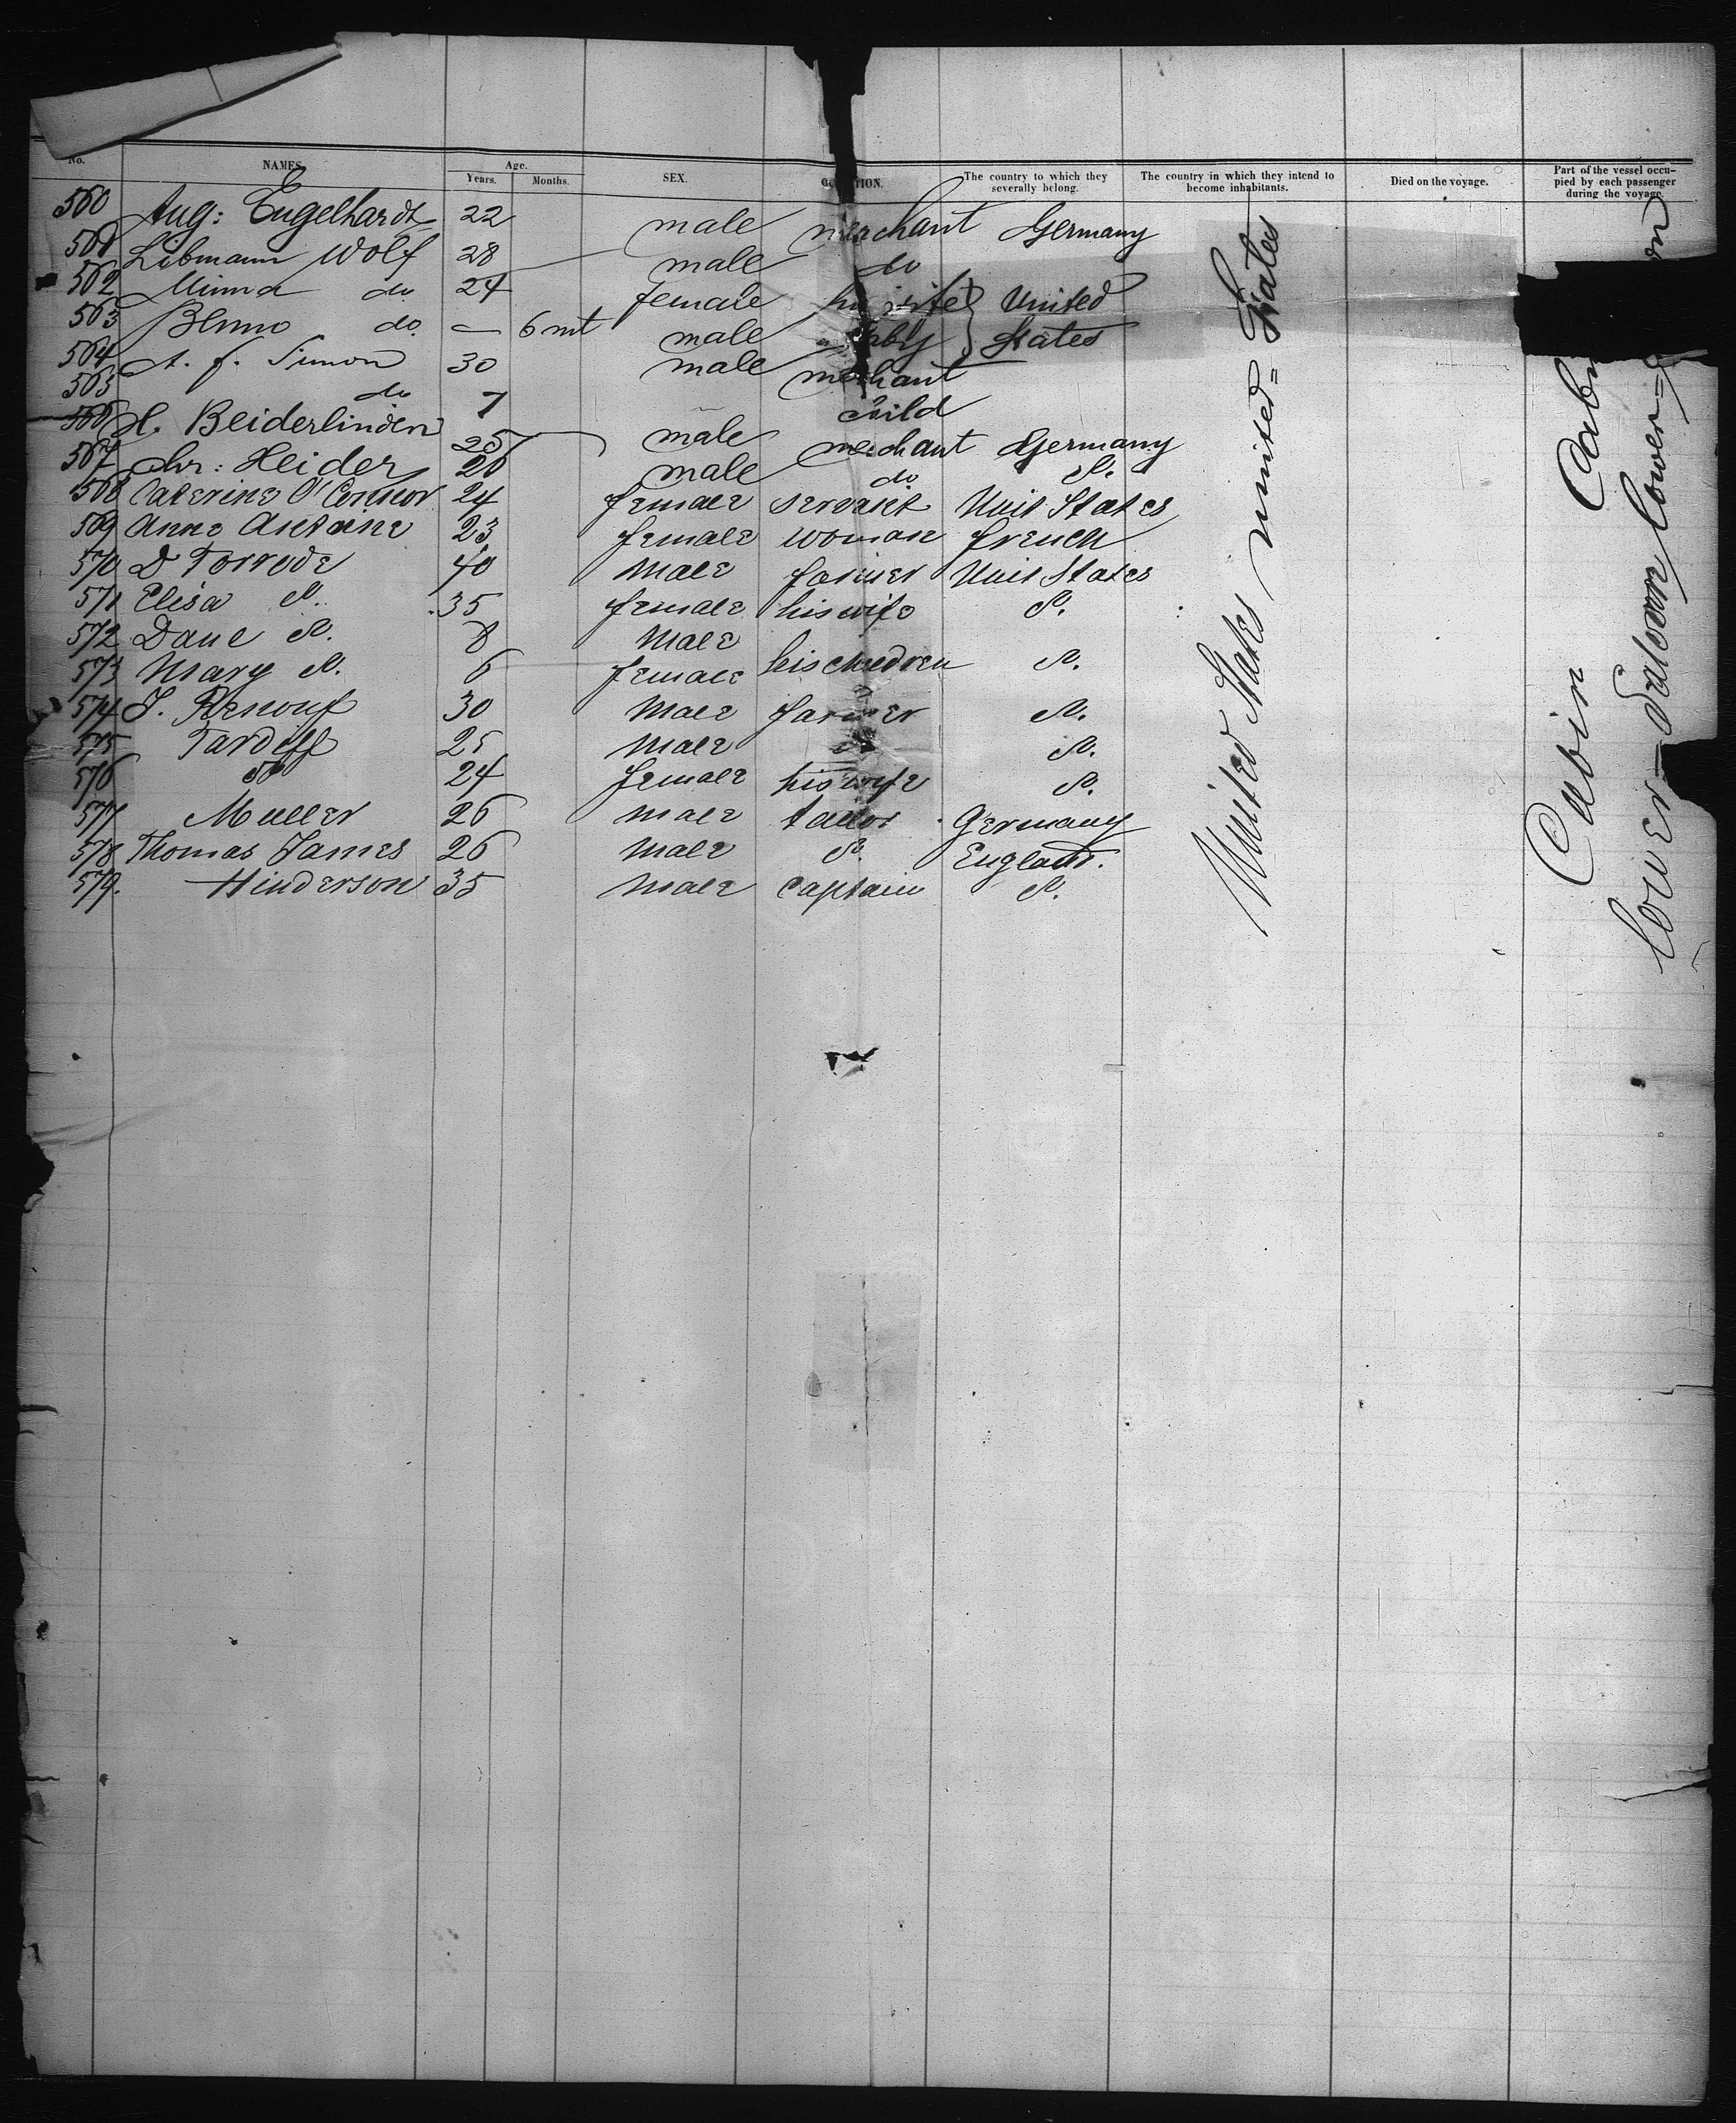 No. NAMES. Age. Years. Months. SEX. The country to which they severally belong. The country in which they intend to become inhabitants. Died on the voyage. Part of the vessel occupied by each passenger during the voyage.
560 Aug: Engelhardt 22 male merchant Germany
561 Libmann Wolf 28 male do
562 Minna do 24 female his wife } United
563 Benno do. — 6 mt male baby } States
564 A. J. Simon 30 male merchant
565 do 7 child
566 H. Beiderlinden 25 male merchant Germany
567 Chr: Heider 26 male do D.
568 Caterine O'Connor 24 female servant Unit States
569 Anne Antoine 23 female woman french
570 D Torrode 40 Male farmer Unit States
571 Elisa D. 35 female his wife D.
572 Dane D. 8 Male
573 Mary D. 6 female his children D.
574 J. Renouf 30 Male farmer D.
575 Tardiff 25 Male D. D.
576 D 24 female his wife D.
577 Muller 26 Male tailor Germany
578 Thomas James 26 Male D. England.
579. Hinderson 35 Male captain D.
United States united= States
Cabin
lower— Saloon lower=